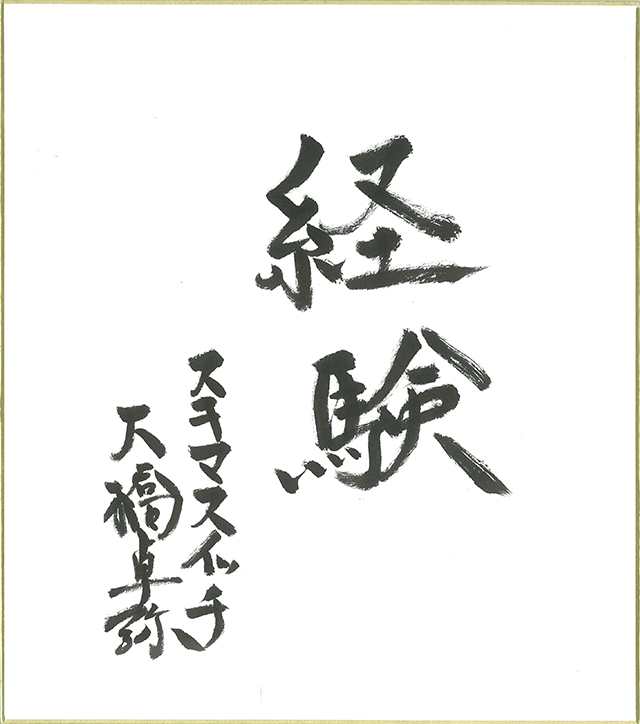 経験
スキマスイッチ
大橋卓弥